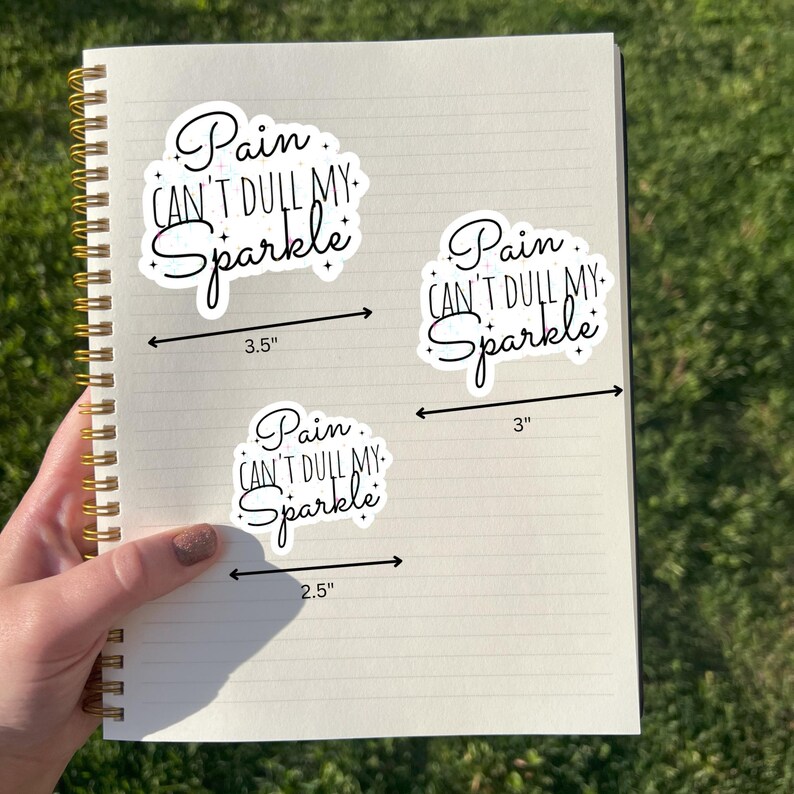 Pain
CAN'T DULL MY
Sparkle
3.5"
Pain
CAN'T DULL MY
Sparkle
3"
Pain
CAN'T DULL MY
Sparkle
2.5"